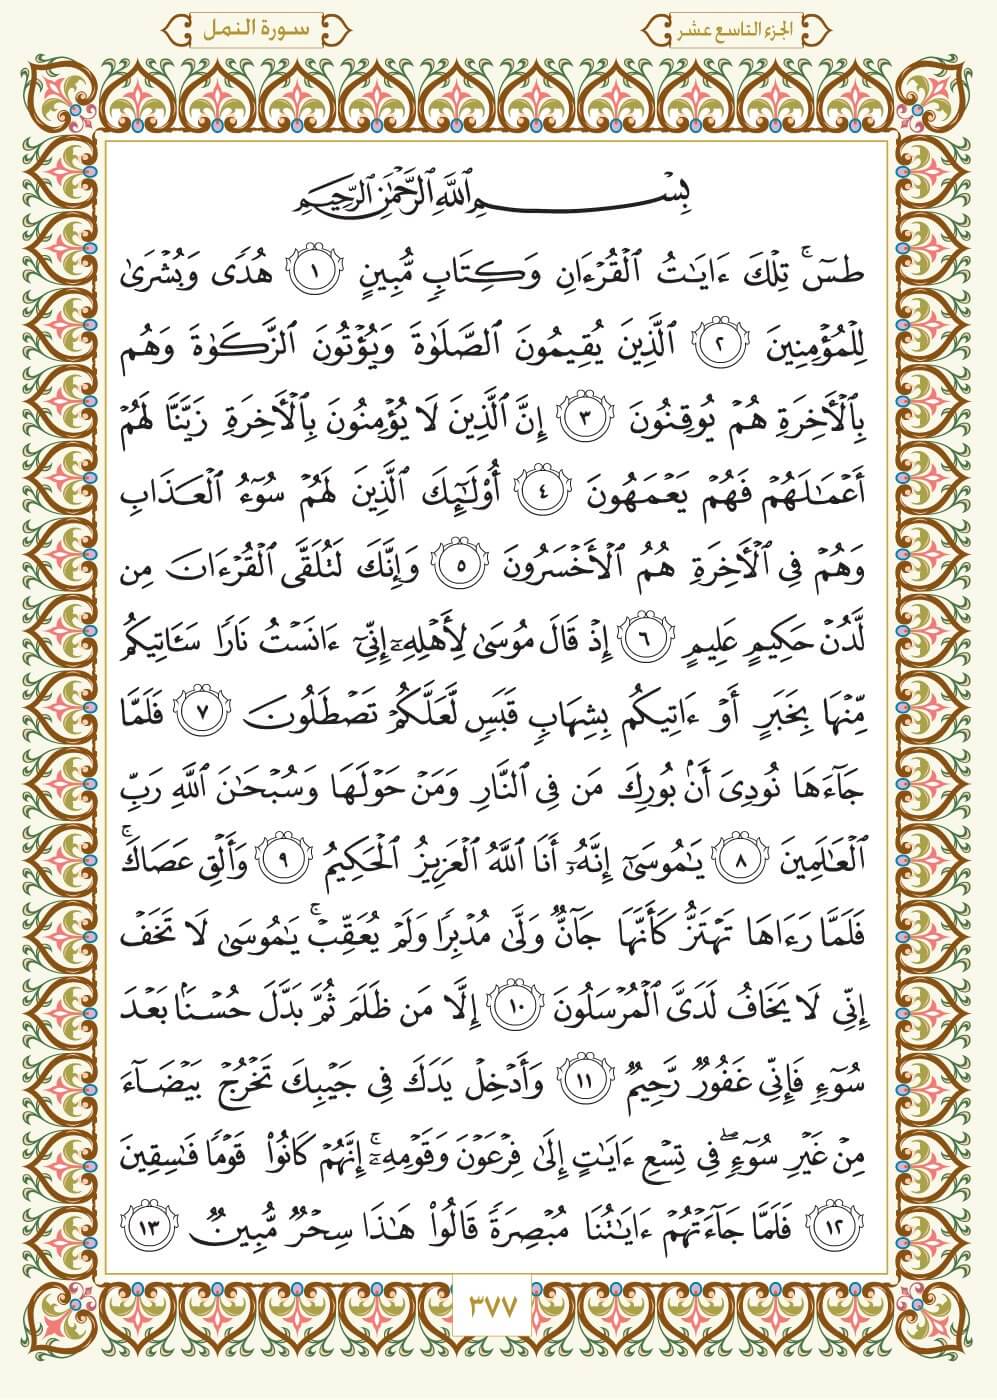 الجزء التاسع عشر
سورة النمل
بِسْمِ ٱللَّهِ ٱلرَّحْمَٰنِ ٱلرَّحِيمِ
طسٓۚ تِلْكَ ءَايَٰتُ ٱلْقُرْءَانِ وَكِتَابٍ مُّبِينٍ ١ هُدًى وَبُشْرَىٰ
لِلْمُؤْمِنِينَ ٢ ٱلَّذِينَ يُقِيمُونَ ٱلصَّلَوٰةَ وَيُؤْتُونَ ٱلزَّكَوٰةَ وَهُم
بِٱلْأَخِرَةِ هُمْ يُوقِنُونَ ٣ إِنَّ ٱلَّذِينَ لَا يُؤْمِنُونَ بِٱلْأَخِرَةِ زَيَّنَّا لَهُمْ
أَعْمَٰلَهُمْ فَهُمْ يَعْمَهُونَ ٤ أُوْلَٰٓئِكَ ٱلَّذِينَ لَهُمْ سُوٓءُ ٱلْعَذَابِ
وَهُمْ فِى ٱلْأَخِرَةِ هُمُ ٱلْأَخْسَرُونَ ٥ وَإِنَّكَ لَتُلَقَّى ٱلْقُرْءَانَ مِن
لَّدُنْ حَكِيمٍ عَلِيمٍ ٦ إِذْ قَالَ مُوسَىٰ لِأَهْلِهِۦٓ إِنِّىٓ ءَانَسْتُ نَارًا سَـَٔاتِيكُم
مِّنْهَا بِخَبَرٍ أَوْ ءَاتِيكُم بِشِهَابٍ قَبَسٍ لَّعَلَّكُمْ تَصْطَلُونَ ٧ فَلَمَّا
جَآءَهَا نُودِىَ أَنۢ بُورِكَ مَن فِى ٱلنَّارِ وَمَنْ حَوْلَهَا وَسُبْحَٰنَ ٱللَّهِ رَبِّ
ٱلْعَٰلَمِينَ ٨ يَٰمُوسَىٰٓ إِنَّهُۥٓ أَنَا ٱللَّهُ ٱلْعَزِيزُ ٱلْحَكِيمُ ٩ وَأَلْقِ عَصَاكَۚ
فَلَمَّا رَءَاهَا تَهْتَزُّ كَأَنَّهَا جَآنٌّ وَلَّىٰ مُدْبِرًا وَلَمْ يُعَقِّبْۚ يَٰمُوسَىٰ لَا تَخَفْ
إِنِّى لَا يَخَافُ لَدَىَّ ٱلْمُرْسَلُونَ ١٠ إِلَّا مَن ظَلَمَ ثُمَّ بَدَّلَ حُسْنًۢا بَعْدَ
سُوٓءٍ فَإِنِّى غَفُورٌ رَّحِيمٌ ١١ وَأَدْخِلْ يَدَكَ فِى جَيْبِكَ تَخْرُجْ بَيْضَآءَ
مِنْ غَيْرِ سُوٓءٍۖ فِى تِسْعِ ءَايَٰتٍ إِلَىٰ فِرْعَوْنَ وَقَوْمِهِۦٓۚ إِنَّهُمْ كَانُوا۟ قَوْمًا فَٰسِقِينَ
١٢ فَلَمَّا جَآءَتْهُمْ ءَايَٰتُنَا مُبْصِرَةً قَالُوا۟ هَٰذَا سِحْرٌ مُّبِينٌ ١٣
٣٧٧